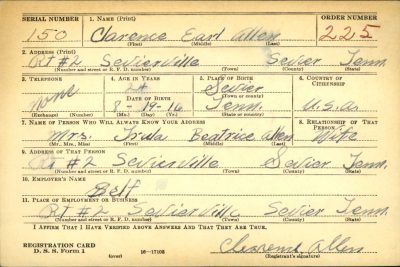 SERIAL NUMBER 1. NAME (Print) ORDER NUMBER
150 Clarence Earl Allen 225
(First) (Middle) (Last)
2. ADDRESS (Print)
Rt #2 Sevierville Sevier Tenn.
(Number and street or R. F. D. number) (Town) (County) (State)
3. TELEPHONE 4. AGE IN YEARS 5. PLACE OF BIRTH 6. COUNTRY OF CITIZENSHIP
none 24 Sevier
DATE OF BIRTH (Town or county)
8-14-16 Tenn. U.S.A.
(Exchange) (Number) (Mo.) (Day) (Yr.) (State or country)
7. NAME OF PERSON WHO WILL ALWAYS KNOW YOUR ADDRESS 8. RELATIONSHIP OF THAT PERSON
Mrs. Beatrice Allen Wife
(Mr., Mrs., Miss) (First) (Middle) (Last)
9. ADDRESS OF THAT PERSON
Rt #2 Sevierville Sevier Tenn.
(Number and street or R. F. D. number) (Town) (County) (State)
10. EMPLOYER'S NAME
Self
11. PLACE OF EMPLOYMENT OR BUSINESS
Rt #2 Sevierville Sevier Tenn.
(Number and street or R. F. D. number) (Town) (County) (State)
I AFFIRM THAT I HAVE VERIFIED ABOVE ANSWERS AND THAT THEY ARE TRUE.
REGISTRATION CARD
D. S. S. Form 1 16—17105 Clarence Allen
(Registrant's signature)